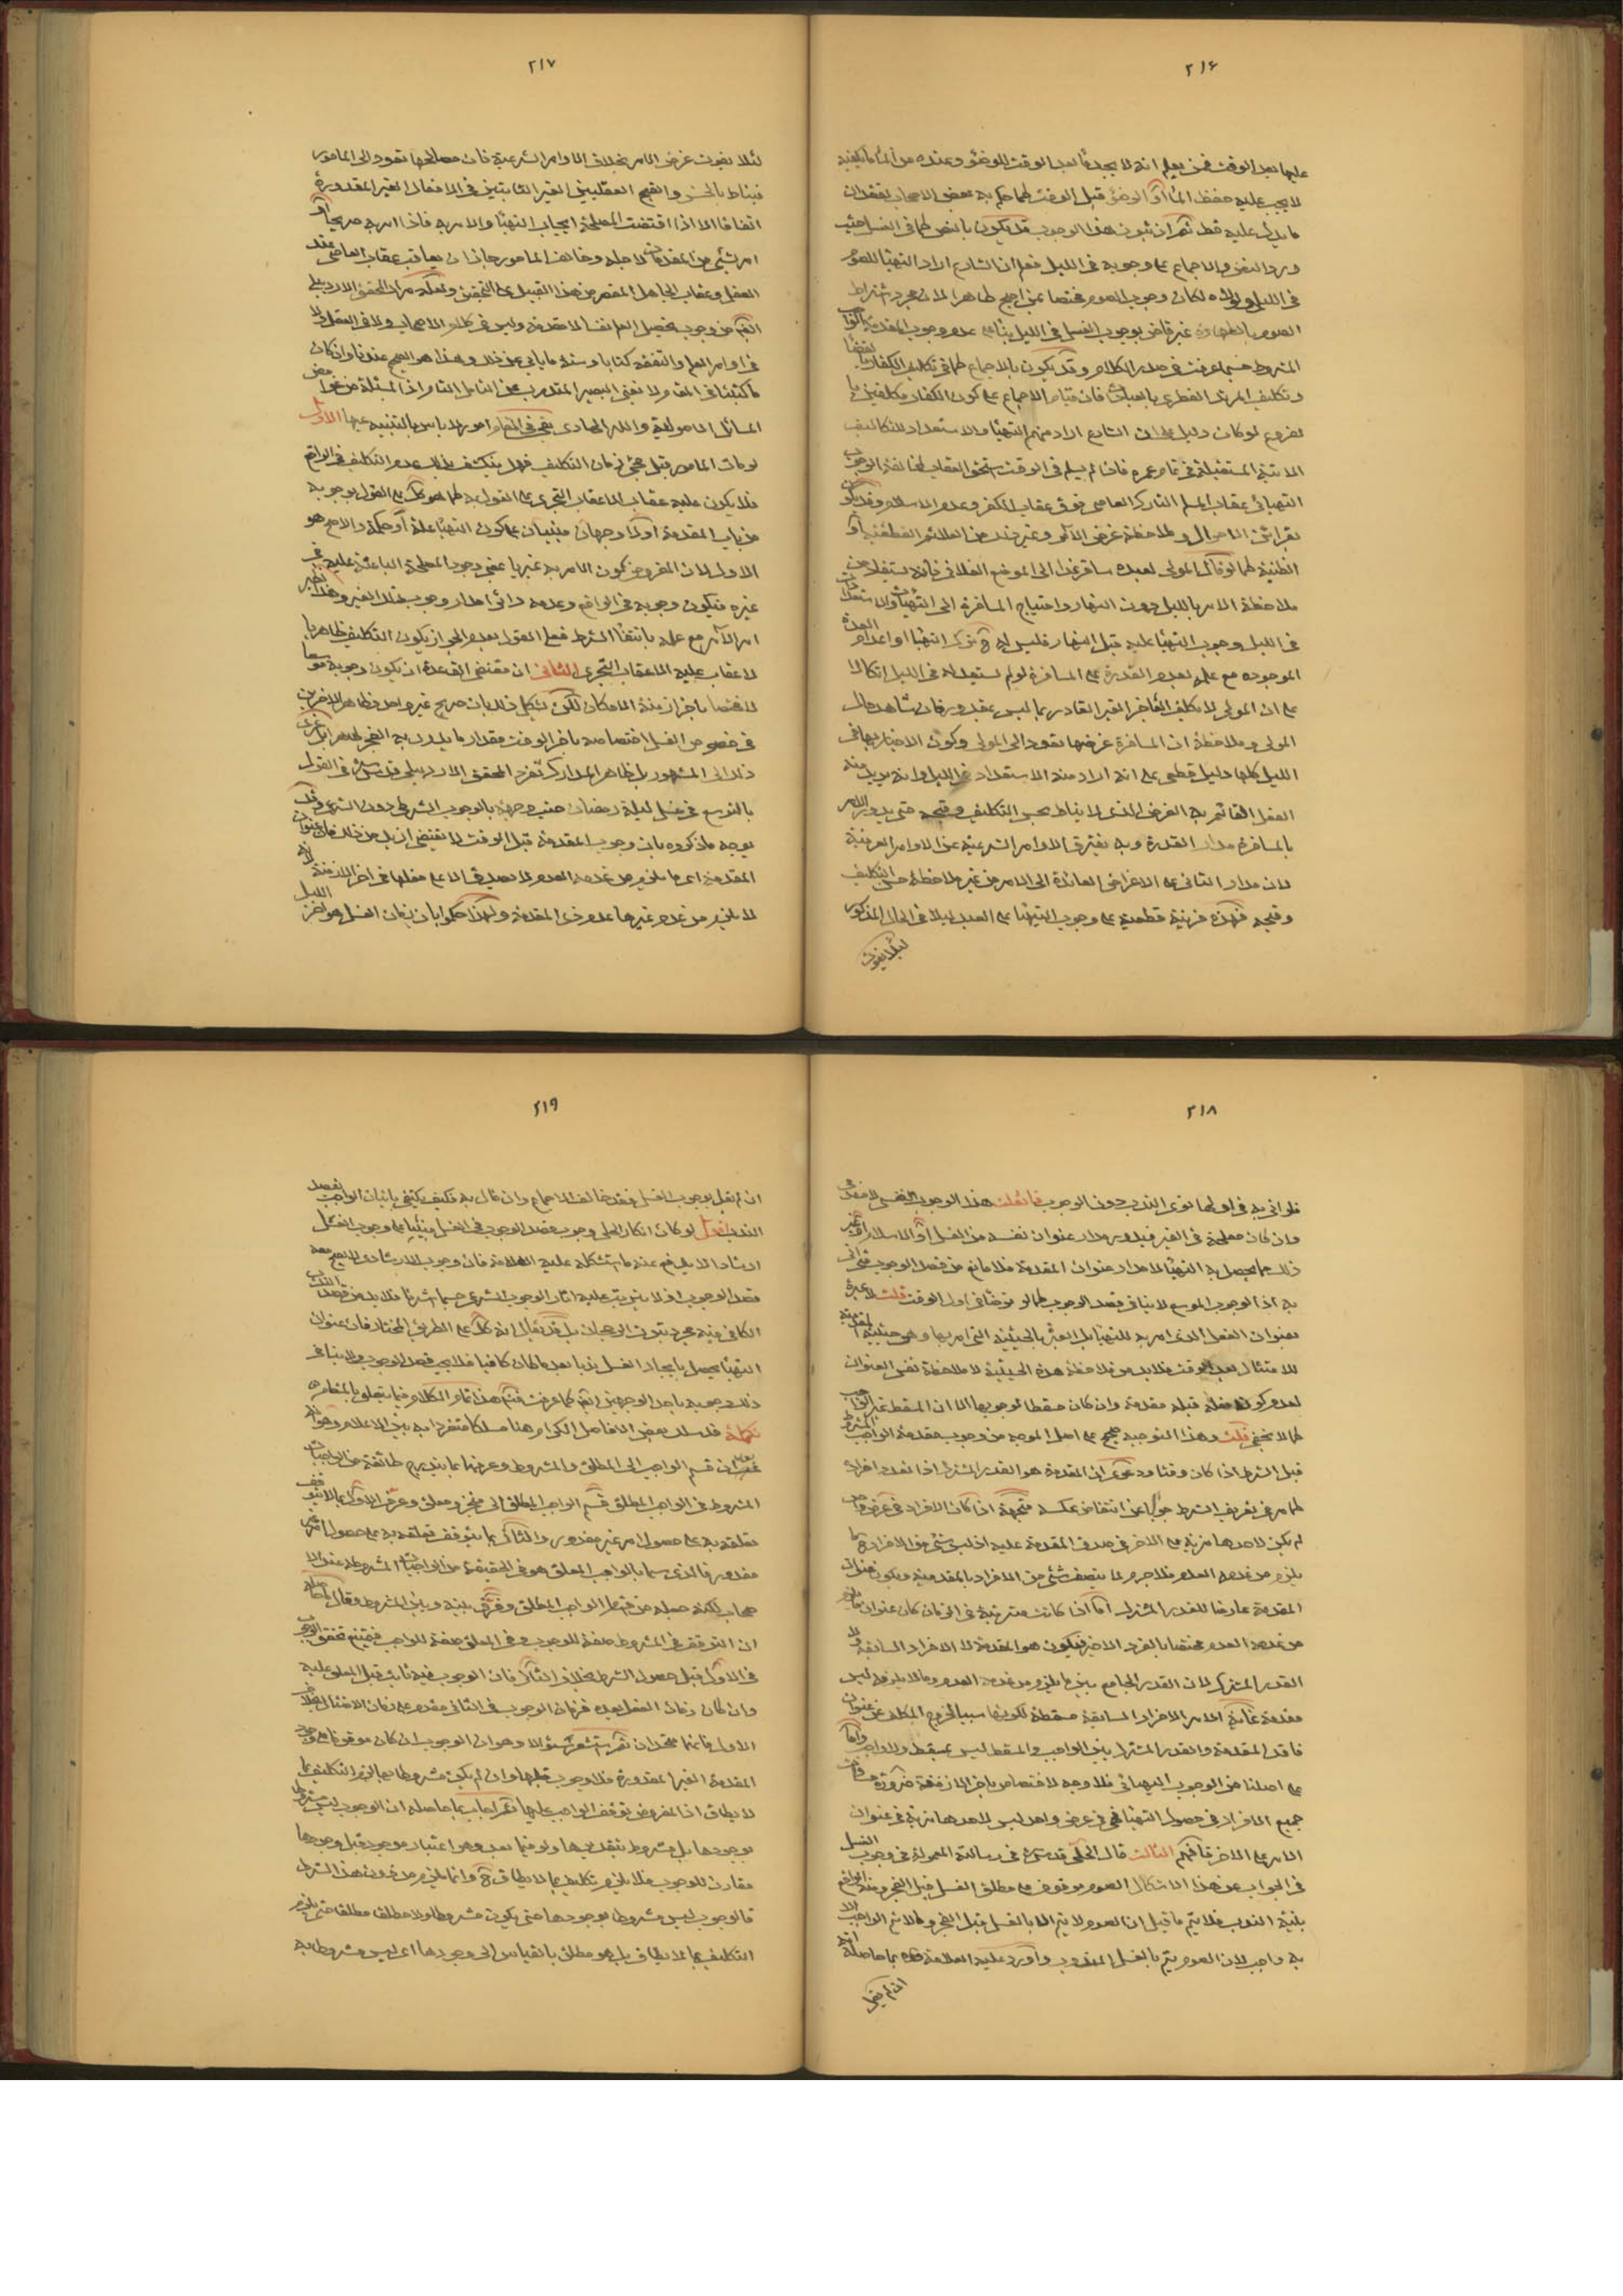 ٢١۶
عليها بعد الوقت فمن يعلم انه لا يجد ماء بعد الوقت للوضوء وعنده من الماء ما يكفيه
لا يجب عليه حفظ الماء او الوضوء قبل الوقت كما حكم به بعض الاصحاب لفقدان
ما يدل عليه قط ثم ان ثبوت هذا الوجوب قد يكون بالنص كما في الغسل حيث
ورد النص والاجماع على وجوبه في الليل فعلم ان الشارع اراد التهيؤ للصوم
في الليل لكان وجوب الصوم مختصا بمن اصبح طاهرا لان مجرد اشتراط
الصوم بالطهارة غير قاض بوجوب الغسل في الليل بناء على عدم وجوب المقدمة
المشروط حسبما عرفت في صدر الكلام وقد يكون بالاجماع كما في تكليف الكفار
وتكليف المرتد الفطري بالعبادات فان قيام الاجماع على كون الكفار مكلفين
لفروع لو كان دليل على ان الشارع اراد منهم التهيؤ والاستعداد للتكاليف
الاتية المستقبلة في تمام عمره فان لم يسلم في الوقت استحق العقاب لمخالفة الوجوب
التهيائي عقاب المسلم التارك العاصي فوق عقاب الكفر وعدم الاسلام وقد يكون
بقرائن الاحوال وملاحظة غرض الآمر وغير ذلك من العلائم القطعية او
الظنية كما لو قال المولى لعبده سافر غدا الى الموضع الفلاني فانه يستفاد من
ملاحظة الامر بالليل دون النهار واحتياج المسافرة الى التهيؤ والاستعداد
في الليل وجوب التهيؤ عليه قبل النهار فليس له ح ترك التهيؤ او اعدام العدة
الموجودة مع علمه بعدم القدرة على المسافرة لو لم يستعد له في الليل اتكالا
على ان المولى لا يكلف العاجز الغير القادر بما ليس بمقدور فان شاهد حال
المولى وملاحظة ان المسافرة غرضها تعود الى المولى وكون الاخبار بها في
الليل كلها دليل قطعي على انه اراد منه الاستعداد في الليل وانه يريد منه
الفعل القائم به الغرض الذي لا يناط بحسن التكليف وقبحه حتى يدور الامر
بالمسافرة مدار القدرة وبه يفترق الاوامر الشرعية عن الاوامر العرفية
لان مدار الثاني على الاغراض العائدة الى الامر من غير ملاحظة حسن التكليف
وقبحه فهذه قرينة قطعية على وجوب التهيؤ على العبد ليلا في الحال المذكور
لئلا يفوت
٢١٧
لئلا يفوت غرض الامر بخلاف الاوامر الشرعية فان مصالحها تعود الى المامور
فيناط بالحسن والقبح العقليين الغير الثابتين في الافعال الغير المقدورة
اتفاقا الا اذا اقتضت المصلحة ايجاب التهيؤ والامر به فاذا امر به صريحا او
امر بشيء من المقدمات لاجله وخالف المامور جاز ان يعاقب عقاب العاصي عند
العقل وعقاب الجاهل المقصر من هذا القبيل على التحقيق ولعله مراد المحقق الاردبيلي
من وجوب تحصيل العلم نفسا لا مقدمة وليس في كلام الاصحاب ولا في العقل ولا
في اوامر العلم والتفقه كتابا وسنة ما يابى عن ذلك وهذا هو الصحيح عندنا وان كان
ما كتبنا في المقام لا نغني البصير المتدرب عن التامل التام اذ المسئلة من غوامض
المسائل الاصولية والله الهادي بقي في المقام امور لا باس بالتنبيه عليها الاول
لو مات المامور قبل مجيء زمان التكليف فهل ينكشف بذلك عدم التكليف في الواقع
فلا يكون عليه عقاب الا عقاب التجري على القول به كما هو كك على القول بوجوبه
من باب المقدمة او لا وجهان مبنيان على كون التهيؤ علة او حكمة والاصح هو
الاول لان المفروض كون الامر به غيريا بمعنى وجود المصلحة الباعثة عليه في
غيره فيكون وجوبه في الواقع وعدمه دائرا مدار وجوب ذلك الغير وهذا نظير
امر الآمر مع علمه بانتفاء الشرط فعلى القول بعدم الجواز يكون التكليف ظاهريا
لا عقاب عليه الا عقاب التجري الثاني ان مقتضى القاعدة ان يكون وجوبه موسعا
لا مختصا باخر ازمنة الامكان لكن يشكل ذلك بان صريح غير واحد وظاهر الاخرين
في خصوص الغسل اختصاصه باخر الوقت مقدار ما يدرك به الفجر طاهرا بل عزى
ذلك الى المشهور بل ظاهر المدارك تفرد المحقق الاردبيلي قدس سره في القول
بالتوسع في غسل ليلة رمضان حيث وجهه بالوجوب الشرطي دون الشرعي وقد
يوجه ما ذكروه بان وجوب المقدمة قبل الوقت لا يقتضي ازيد من ذلك فان عنوان
المقدمة اعني ما يلزم من عدمه العدم لا يصدق الا على فعلها في اخر الازمنة لانه
لا يلزم من عدم غيرها عدم ذي المقدمة ولهذا حكموا بان زمان الغسل هو اخر الليل
٢١٨
فلو اتى به في اولها نوى الندب دون الوجوب فان قلت هذا الوجوب النفسي لا مقدمي
وان كان مصلحة في الغير فيدور مدار عنوان نفسه من الغسل او الاسلام او غير
ذلك مما يحصل به التهيؤ لا مدار عنوان المقدمة فلا مانع من قصد الوجوب متى اتى
به اذ الوجوب الموسع لا ينافي قصد الوجوب كما لو توضأ في اول الوقت قلت لا عبرة
بعنوان الفعل الذي امر به للتهيؤ بل العبرة بالحيثية التي امر بها وهي حيثية المقدمية
للامتثال بعد الوقت فلا بد من ملاحظة هذه الحيثية لا ملاحظة نفس العنوان
لعدم كون فعله قبله مقدمة وان كان مسقطا لوجوبها الا ان المسقط غير الواجب
كما لا يخفى قلت وهذا التوجيه صحيح على اصل الموجه من وجوب مقدمة الواجب المشروط
قبل الشرط اذا كان وقتا ودعوى ان المقدمة هو القدر المشترك اذا تعدد افراده
كما مر في تعريف الشرط جوابا عن انتقاض عكسه متجهة اذا كان الافراد في عرض واحد
لم يكن لاحدها مزية على الاخر في صدق المقدمة عليه اذ ليس شيء من الافراد ح مما
يلزم من عدمه العدم فلا جرم لما يتصف شيء من الافراد بالمقدمية ويكون عنوان
المقدمة عارضا للقدر المشترك اما اذا كانت مترتبة في الزمان كان عنوان ما يلزم
من عدمه العدم مختصا بالفرد الاخير فيكون هو المقدمة لا الافراد السابقة ولا
القدر المشترك لان القدر الجامع بين ما يلزم من عدمه العدم وما لا يلزم ليس
مقدمة غاية الامر الافراد السابقة مسقطة لكونها سببا لخروج المكلف عن عنوان
فاقد المقدمة والقدر المشترك بين الواجب والمسقط ليس بمسقط ولا واجب واما
على اصلنا من الوجوب التهيائي فلا وجه لاختصاص باخر الازمنة ضرورة مساوات
جميع الافراد في حصول التهيؤ فهي في عرض واحد ليس لاحدها مزية في عنوان
الامر على الاخر فافهم الثالث قال الحلي قدس سره في رسالته المعمولة في وجوب الغسل
في الجواب عن هذا الاشكال الصوم موقوف على مطلق الغسل قبل الفجر
بنية الندب فلا يتم ما قيل ان الصوم لا يتم الا بالغسل قبل الفجر وما لا يتم الواجب الا
به واجب لان الصوم يتم بالغسل المندوب واورد عليه العلامة قده بما حاصله انه
ان لم يقل
٢١٩
ان لم يقل بوجوب الغسل فقد خالف الاجماع وان قال به فكيف يكتفي باتيان الواجب بقصد
الندب اقول لو كان انكار الحلي وجوب قصد الوجوب في الغسل مبنيا على وجوب الغسل
ارشادا لا يدفع عنه ما استشكله عليه العلامة فان وجوب الارشادي لا يصح معه
قصد الوجوب اذ لا يترتب عليه اثار الوجوب الشرعي حسبما اشرنا فلا بد من قصد الندب
الكافي فيه مجرد ثبوت الرجحان بل قد يقال انه كك على الطريق المختار فان عنوان
التهيؤ يحصل بايجاد الغسل ندبا بعد ما كان كافيا فلا يجب قصد الوجوب ولا ينافي
ذلك وجوبه باحد الوجهين كما عرفت فتم هذا تمام الكلام فيما يتعلق بالمقام
تكملة قد سلك بعض الافاضل الكرام هنا مسلكا متفردا به بين الاعلام وهو انه
بعد ان قسم الواجب الى المطلق والمشروط وعرفهما بما يندرج طائفة من الواجبات
المشروط في الواجب المطلق قسم الواجب المطلق الى منجز ومعلق وعرف الاول بما لا يتوقف
تعلقه به على حصول امر غير مقدور والثاني بما يتوقف تعلقه به على حصول امر غير
مقدور فالذي سماه بالواجب المعلق هو في الحقيقة من الواجبات المشروطة عند الا
صحاب لكنه جعله من قسم الواجب المطلق وفرق بينه وبين المشروط وقال ما حاصله
ان التوقف في المشروط صفة للوجوب وفي المعلق صفة للواجب فيمتنع تحقق الوجوب
في الاول قبل حصول الشرط بخلاف الثاني فان الوجوب فيه ثابت قبل المعلق عليه
وان كان زمان الفعل بعده فزمان الوجوب في الثاني مقدم على زمان الامتثال بخلاف
الاول فانهما متحدان ثم استشعر سئوالا وهو ان الوجوب ان كان موقوفا على وجود
المقدمة الغير المقدورة فلا وجوب قبلها وان لم يكن مشروطا بها لزم التكليف بما
لا يطاق اذ المفروض توقف الواجب عليها ثم اجاب بما حاصله ان الوجوب ليس مشروطا
بوجودها بل مشروط بتقديرها ولو فيما بعد وهو اعتبار موجود قبل وجودها
مقارن للوجوب فلا يلزم تكليف بما لا يطاق ح وانما يلزم من دون هذا الشرط
فالوجوب ليس مشروطا بوجودها حتى يكون مشروطا ولا مطلقا مطلقا حتى يلزم
التكليف بما لا يطاق بل هو مطلق بالقياس الى وجودها اي ليس مشروطا به